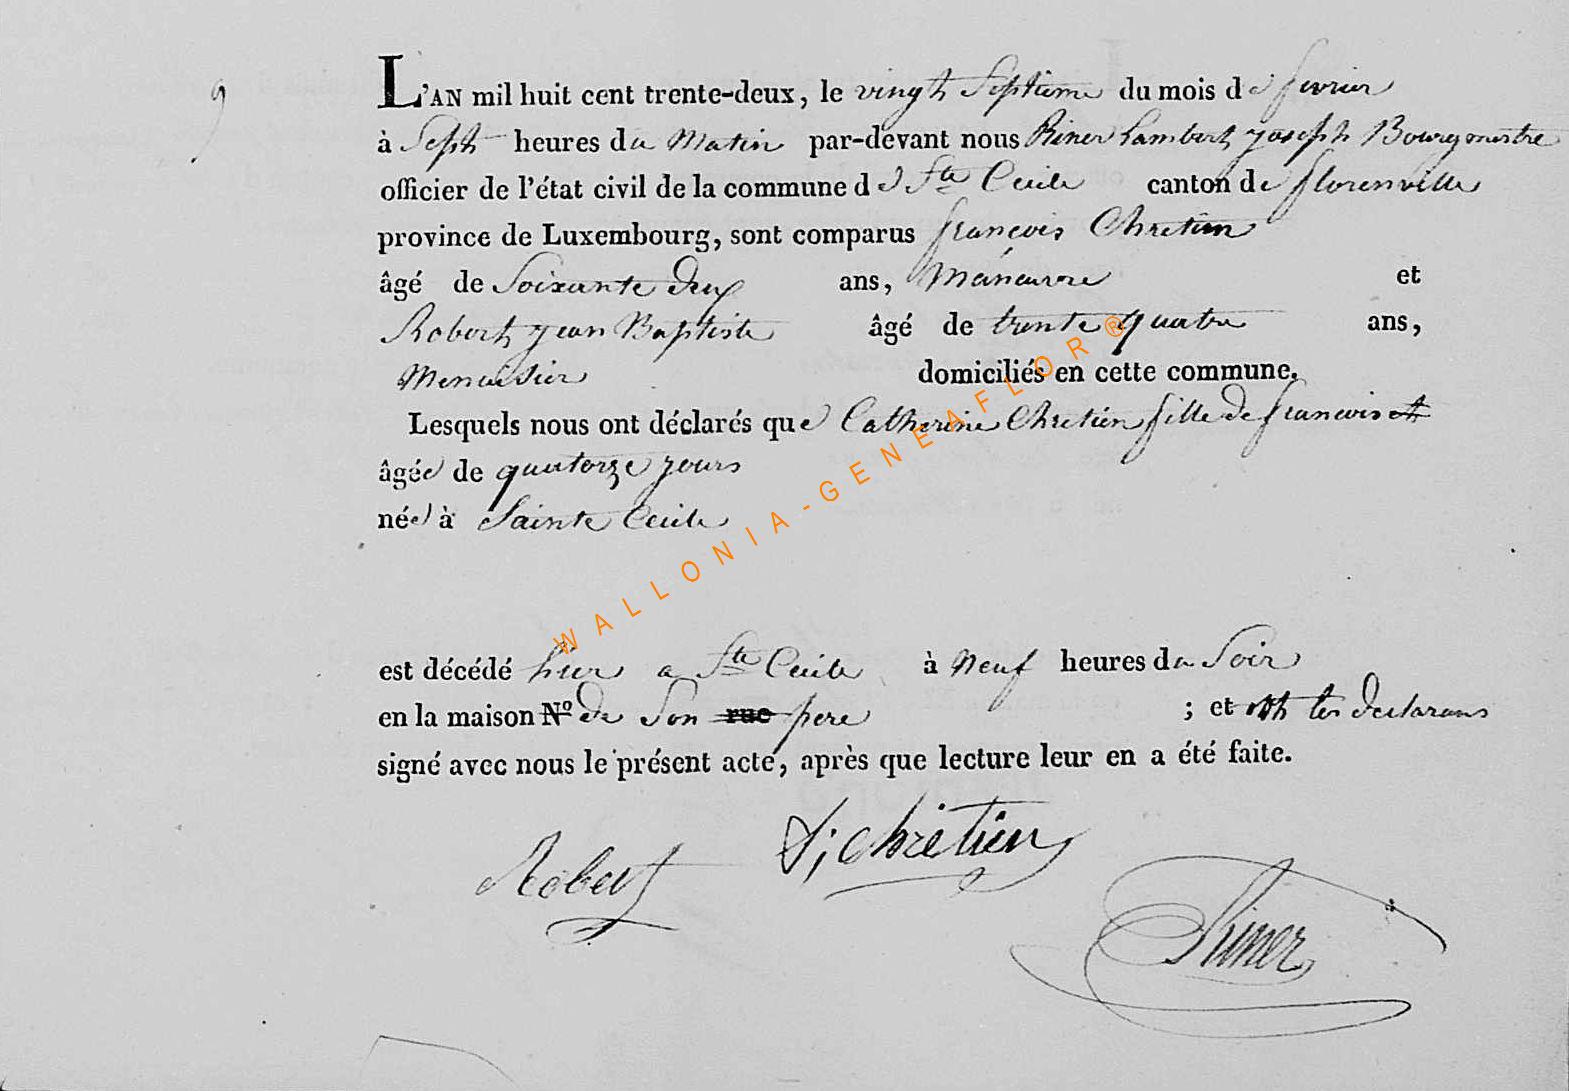 9
L'AN mil huit cent trente-deux, le vingt Septieme du mois de fevrier
à Sept heures du Matin par-devant nous Riner Lambert Joseph Bourgmestre
officier de l'état civil de la commune de Ste Cecile canton de florenville
province de Luxembourg, sont comparus francois Chretien
âgé de Soixante deux ans, Manœuvre et
Robert Jean Baptiste âgé de trente quatre ans,
Menuisier domiciliés en cette commune.
Lesquels nous ont déclarés que Catherine Chretien fille de francois et
âgée de quatorze jours
née à Sainte Cecile
est décédé hier a Ste Cecile à Neuf heures du Soir
en la maison No de Son rue pere ; et ont les declarans
signé avec nous le présent acte, après que lecture leur en a été faite.
Robert f; chrétien
Riner
WALLONIA-GENEAFLOR®